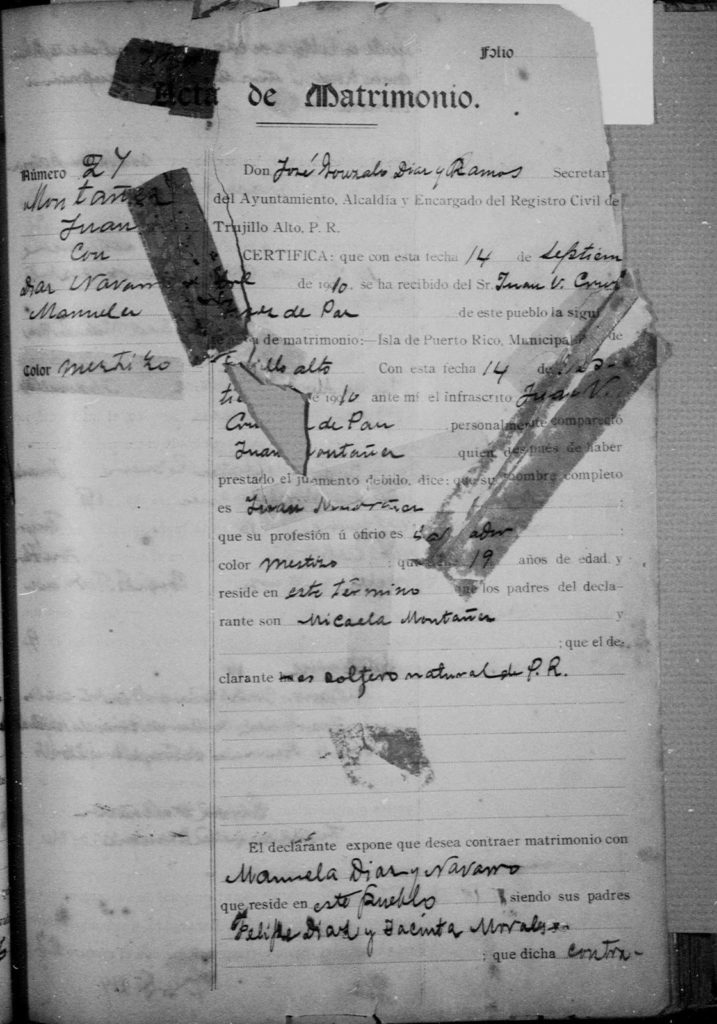 Folio
Acta de Matrimonio.
Número 27
Montañez
Juan
Con
Diaz Navarro
Manuela
Color mestizo
Don José Gonzalo Diaz y Ramos Secretar
del Ayuntamiento, Alcaldía y Encargado del Registro Civil de
Trujillo Alto, P. R.
CERTIFICA: que con esta fecha 14 de Septiem
de 1910. se ha recibido del Sr. Juan V. Cruz
de Paz de este pueblo la sigui
de matrimonio:—Isla de Puerto Rico, Municipal de
Trujillo alto Con esta fecha 14 de
de 1910 ante mi el infrascrito Juan V.
Cruz de Paz personalmente compareció
Juan Montañez quien después de haber
prestado el juramento debido, dice: que su nombre completo
es Juan Montañez :
que su profesión ú oficio es :
color mestizo : que 19 años de edad y
reside en este término que los padres del decla-
rante son Micaela Montañez y
; que el de-
clarante es soltero natural de P. R.
El declarante expone que desea contraer matrimonio con
Manuela Diaz y Navarro
que reside en este pueblo siendo sus padres
Felipe Diaz y Jacinta Morales
; que dicha contra-